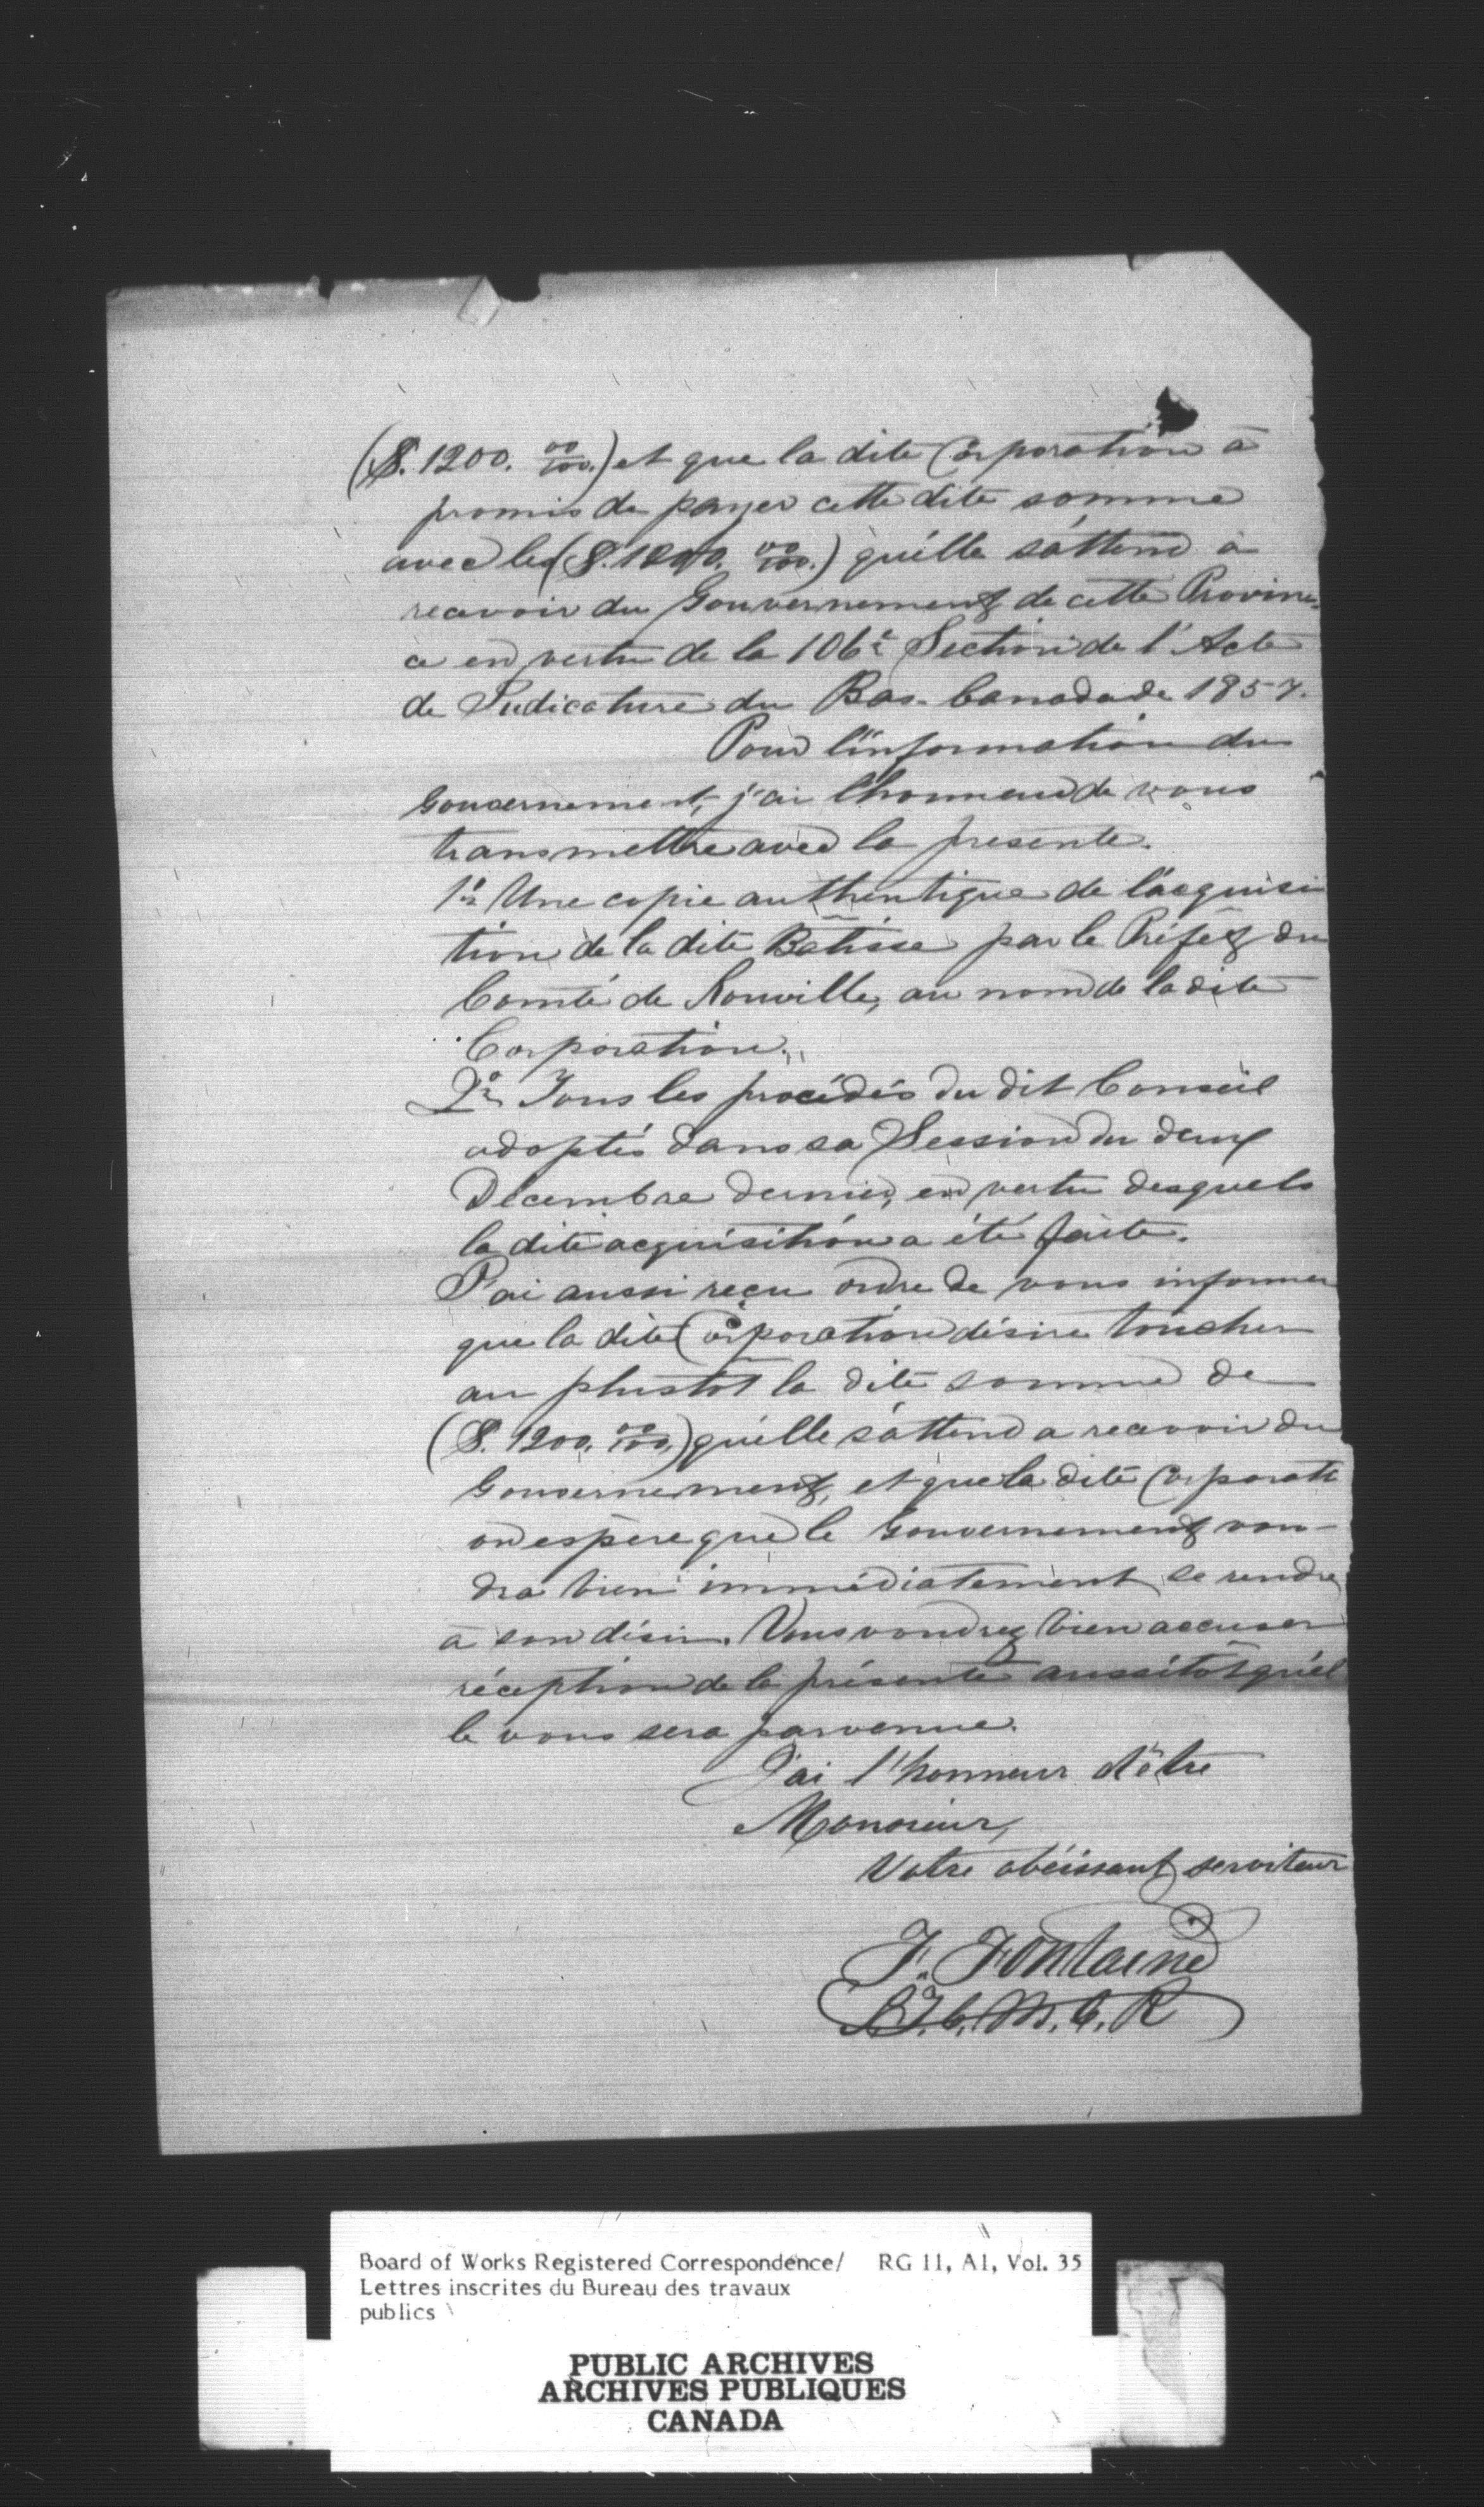 ($. 1200. 00/100.) et que la dite Corporation à
promis de payer cette dite somme
avec les ($. 1200. 00/100.) qu'élle s'áttend à
recevoir du Gouvernement de cette Provin-
ce en vertu de la 106e Section de l'Acte
de Judicature du Bas-Canada de 1857.
Pour l'information du
Gouvernement, j'ai l'honneur de vous
transmettre avec la presente.
1o Une copie authentique de l'acquisi
tion de la dite Bâtisse par le Préfet du
Comté de Rouville, au nom de la dite
Corporation.
2o Tous les procédés du dit Conseil
adoptés dans sa Session du deux
Décembre dernier, en vertu desquels
la dite acquisition a été faite.
J'ai aussi reçu ordre de vous informer
que la dite Corporation désire toucher
au plustôt la dite somme de
($. 1200. 00/100.) qu'élle s'attend a recevoir du
Gouvernement, et que la dite Corporati
on espère que le Gouvernement vou-
dra bien immédiatement se rendre
à son désir. Vous voudrez bien accuser
réception de la présente aussitôt qu'el
le vous sera parvenue.
J'ai l'honneur d'être
Monsieur,
Votre obéissant serviteur
F. Fontaine
S.T.C.M.C.R
Board of Works Registered Correspondence/ RG 11, A1, Vol. 35
Lettres inscrites du Bureau des travaux
publics
PUBLIC ARCHIVES
ARCHIVES PUBLIQUES
CANADA